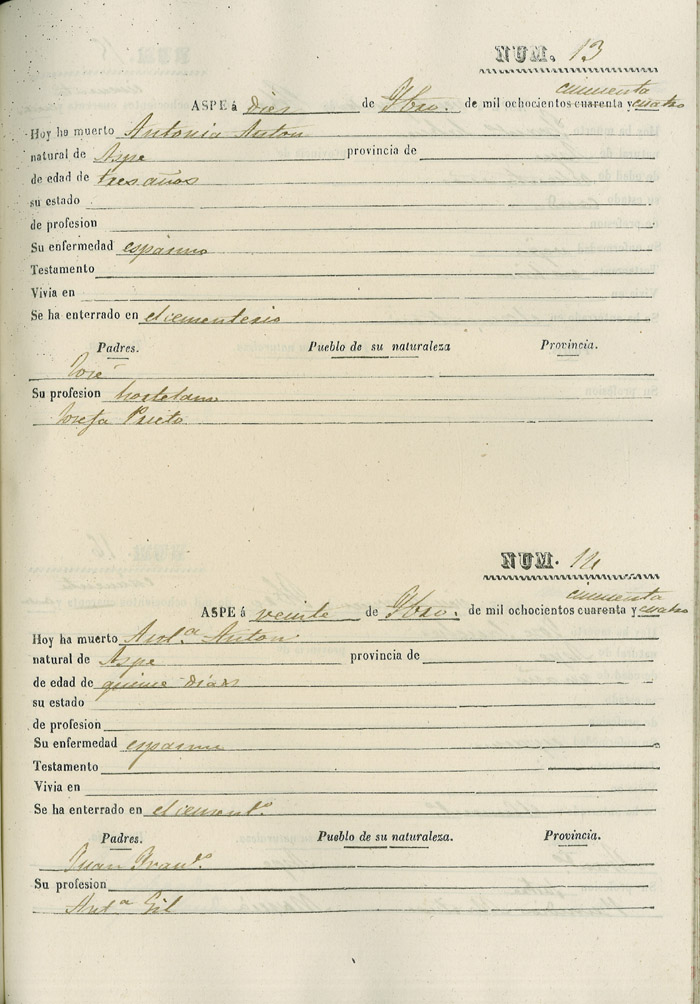 NUM. 13
cincuenta
ASPE á dies de 9bro. de mil ochocientos cuarenta y cuatro
Hoy ha muerto Antonia Anton
natural de Aspe provincia de
de edad de tres años
su estado
de profesion
Su enfermedad espasmo
Testamento
Vivia en
Se ha enterrado en el cementerio
Padres. Pueblo de su naturaleza Provincia.
José
Su profesion hortelano
Josefa Prieto
NUM. 14
cincuenta
ASPE á veinte de 9bro. de mil ochocientos cuarenta y cuatro
Hoy ha muerto Ant.ª Anton
natural de Aspe provincia de
de edad de quince dias
su estado
de profesion
Su enfermedad espasmo
Testamento
Vivia en
Se ha enterrado en el cement.º
Padres. Pueblo de su naturaleza. Provincia.
Juan Fran.co
Su profesion
Ant.ª Gil